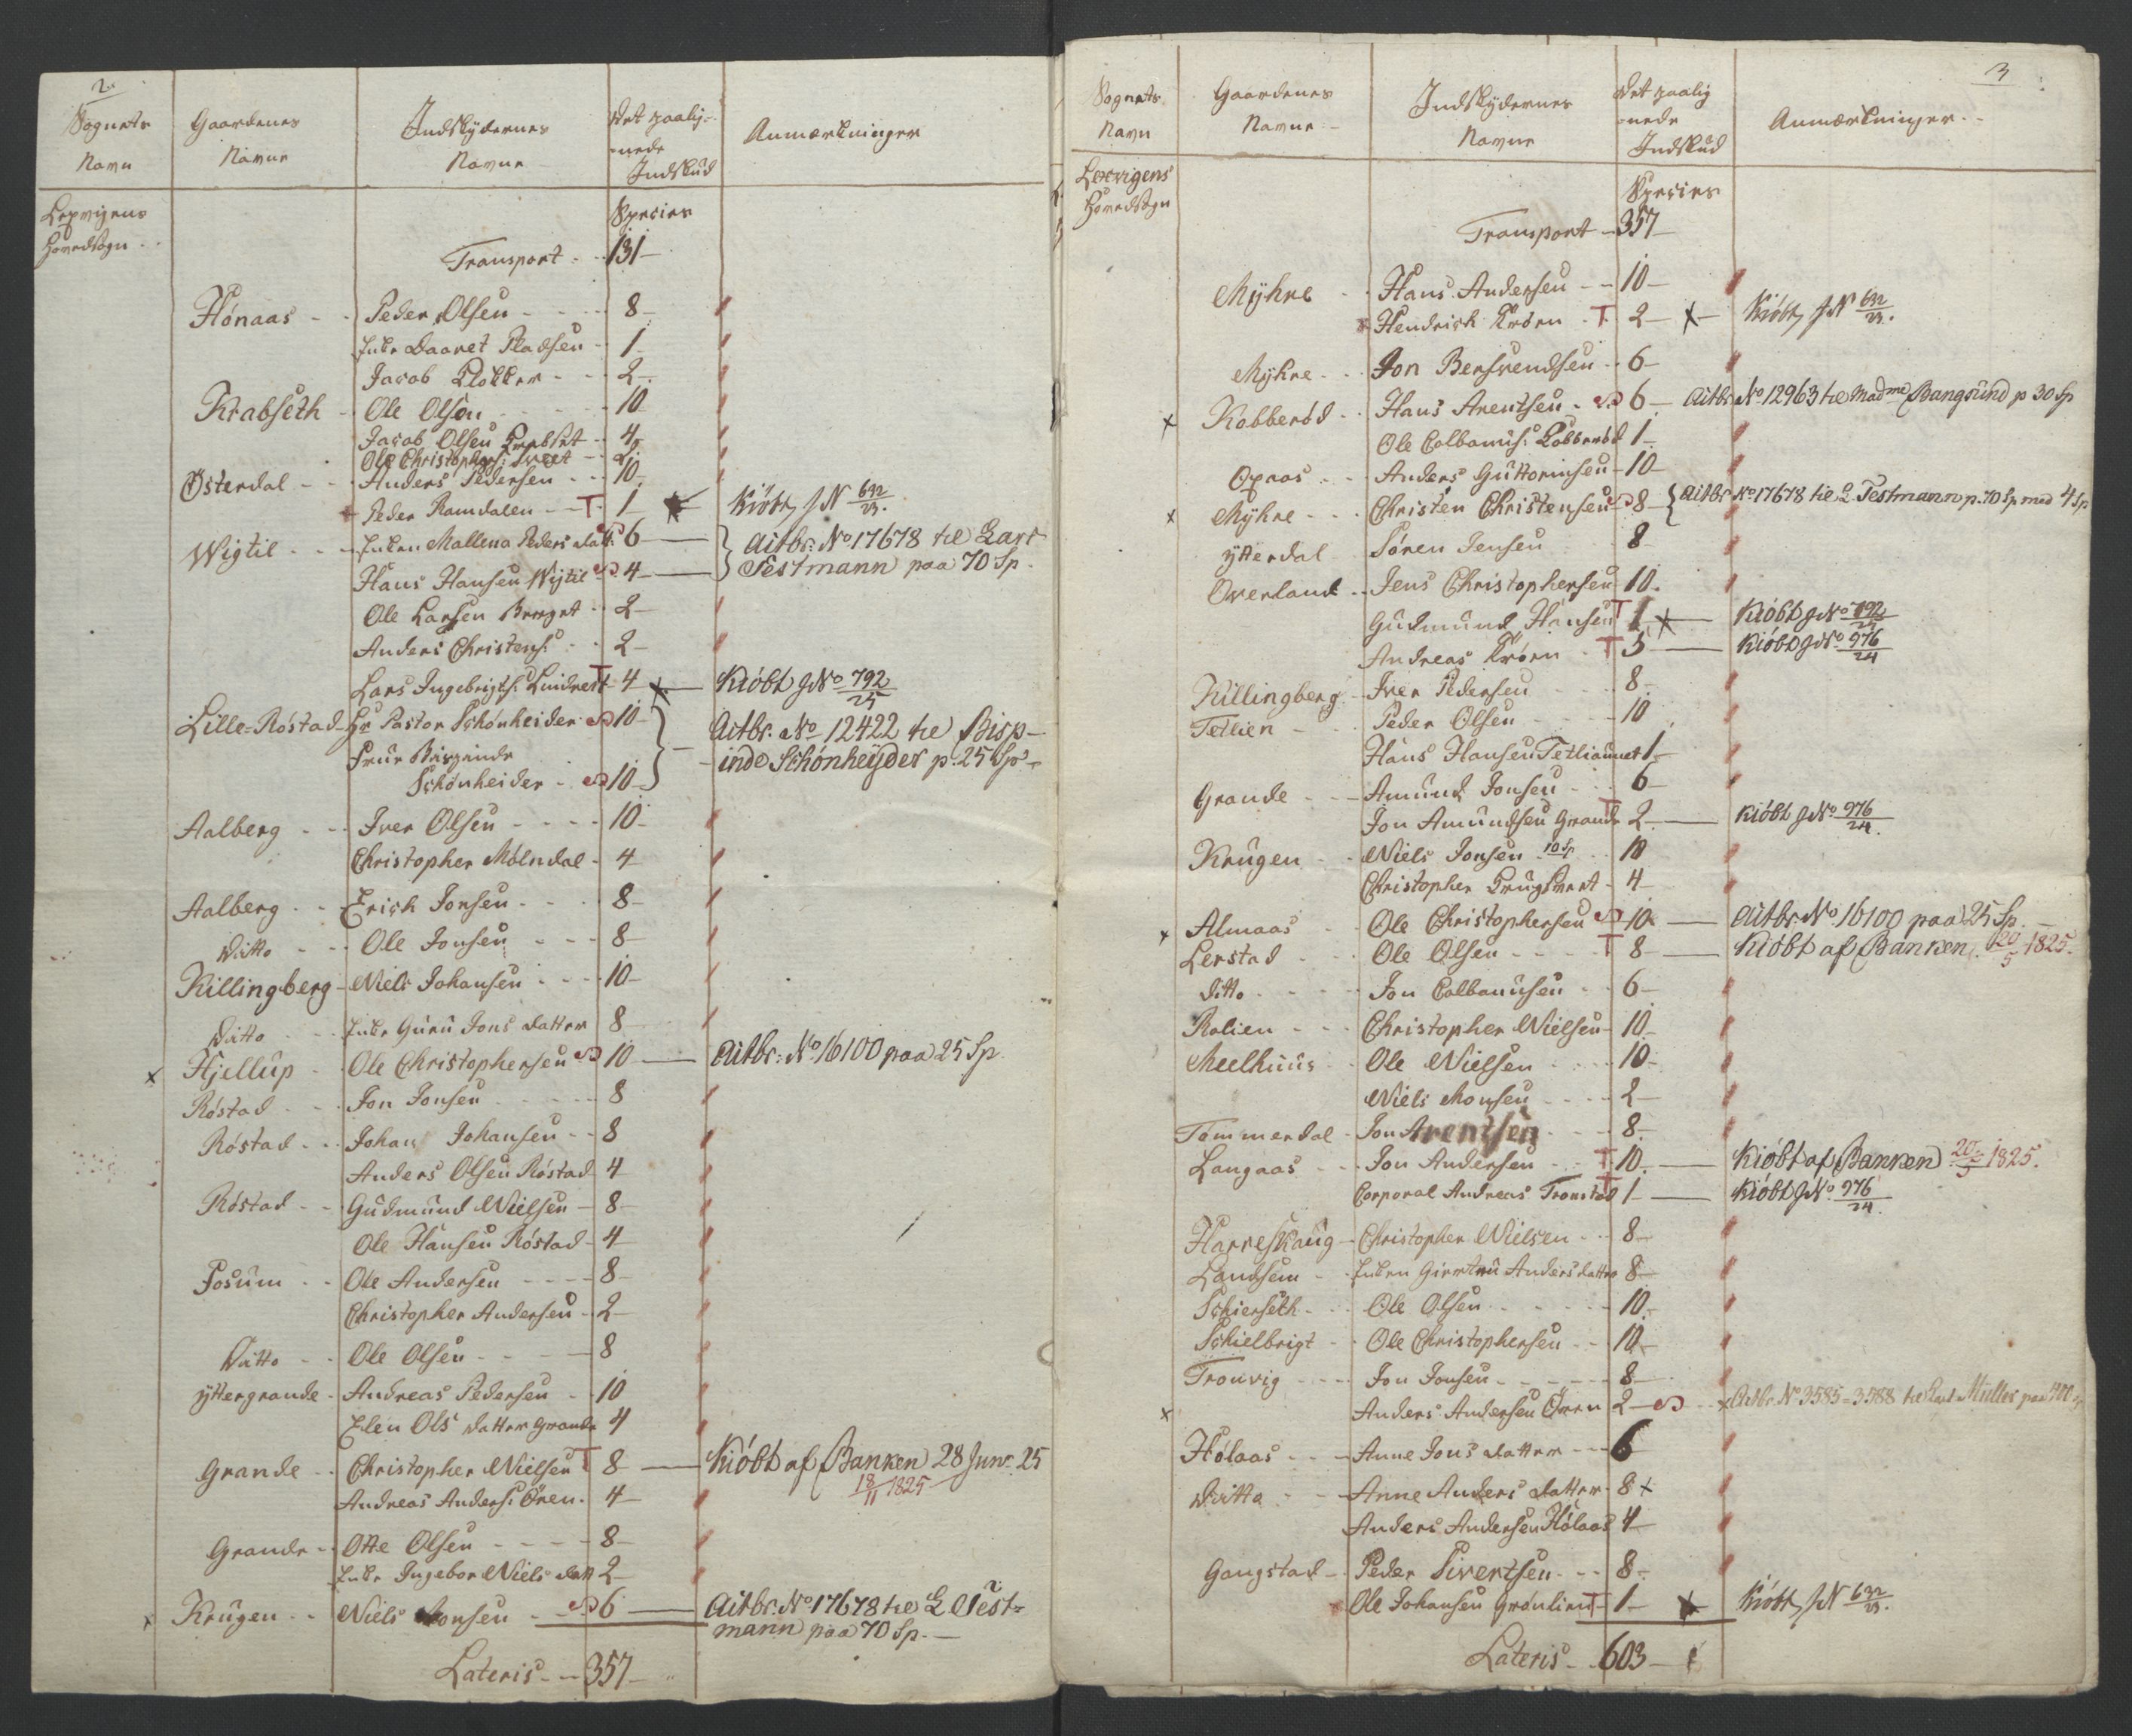 2.
Sognets Navn Gaardenes Navne Indskydernes Navne Det paalig-nede Indskud Anmærkninger
Lexvigens Hovedsogn Species
Transport 131
Hónaas Peder Olsen 8
Enke Daaret Pladsen 1
Jacob Klokker 2
Krabseth Ole Olsen 10
Jacob Olsen Krabset 4
Ole Christophers: 2
Österdal Anders Pedersen 10
Peder Ramdalen T 1 Kiöbt J N 632/23.
Wigtil Enken Mallena Peders datt: 6 Actbr. No 17678 til Lars
Hans Hansen Wigtil 4 Testmann paa 70 Sp.
Ole Larsen Berget 2
Anders Christens: 2
Lars Ingebrigts: Lindvest T 4 Kióbt J No 792/25
Lille-Róstad Hr Pastor Schónheider 10 Actbr. No 12422 til Bisp-
Frue Bispinde inde Schónheyder p. 25 Sp
Schónheider 10
Aalberg Iver Olsen 10
Christopher Mólndal 4
Aalberg Erich Jonsen 8
Ditto Ole Jonsen 8
Killingberg Niels Johansen 10
Ditto Enke Guru Jons datter 8
x Hjellup Ole Christophersen 10 Actbr: No 16100 paa 25 Sp
Róstad Jon Jonsen 8
Róstad Johan Johansen 8
Anders Olsen Róstad 4
Róstad Gudmund Nielsen 8
Ole Hansen Róstad 4
Fosum Ole Andersen 8
Christopher Andersen 2
Ditto Ole Olsen 8
yttergrande Andreas Pedersen 10
Elen Ols datter Grande 4
Grande Christopher Nielsen T 8 Kióbt af Banken 28 Junr. 25
18/11 1825
Andreas Anders: Óren 4
Grande Otte Olsen 8
Enke Ingebor Niels datt 2
x Krugen Niels Monsen 6 Actbr. No 17678 til L Test-
mann paa 70 Sp.
Lateris 357
3
Sognets Navn Gaardenes Navne Indskydernes Navne Det paalig-nede Indskud Anmærkninger
Lexvigens Hovedsogn Species
Transport 357
Myhre Hans Andersen 10
Hendrich Króen T 2 Kióbt J N 632/23.
Myhre Jon Bersvendsen 6
x Kobberód Hans Arentsen 6 Actbr No 12963 til Madme Bangsund p 30 Sp
Ole Colbanus: Kobberód 1
Opaas Anders Guttormsen 10
x Myhre Christen Christensen 8 Actbr No 17678 til L. Testmann p. 70 Sp med 4 Sp
ytterdal Sóren Jensen 8
Overland Jens Christophersen 10
Gudmund Hansen T 1 Kióbt J No 792/25
Andreas Króen T 5 Kióbt J No. 976/24
Killingberg Iver Pedersen 8
Tetlien Peder Olsen 10
Hans Hansen Tetliaunet 1
Grande Amund Jonsen 6
Jon Amundsen Grande T 2 Kióbt J No 976/24.
Krugen Niels Jonsen 10 Sp. 10
Christopher 4
x Almaas Ole Christophersen 10 Actbr No 16100 paa 25 Sp.
Lerstad Ole Olsen T 8 Kióbt af Banken 20/5 1825.
ditto Jon Colbanusen 6
Rolien Christopher Nielsen 10
Meelhuus Ole Nielsen 10
Niels Monsen 2
Tommerdal Jon Arentsen 8
Langaas Jon Andersen T 10 Kióbt af Banken 20/5 1825.
Corporal Andreas Tronstad T 1 Kióbt J No. 976/24.
Harreskaug Christopher Nielsen 8
Landsem Enken Giertru Anders datter 8
Schierseth Ole Olsen 10
Schielbrigt Ole Christophersen 10
Tronvig Jon Jonsen 8
x Anders Andersen Óren 2 x Actbr. No 3585-3588 til Müller paa 400 Sp
Hólaas Anne Jons datter 6
Ditto Anne Anders datter 8 x
Anders Andersen Hólaas 4
Gangstad Peder Sivertsen 8
Ole Johansen Grónlien T 1 Kióbt J N 632/23.
Lateris 603